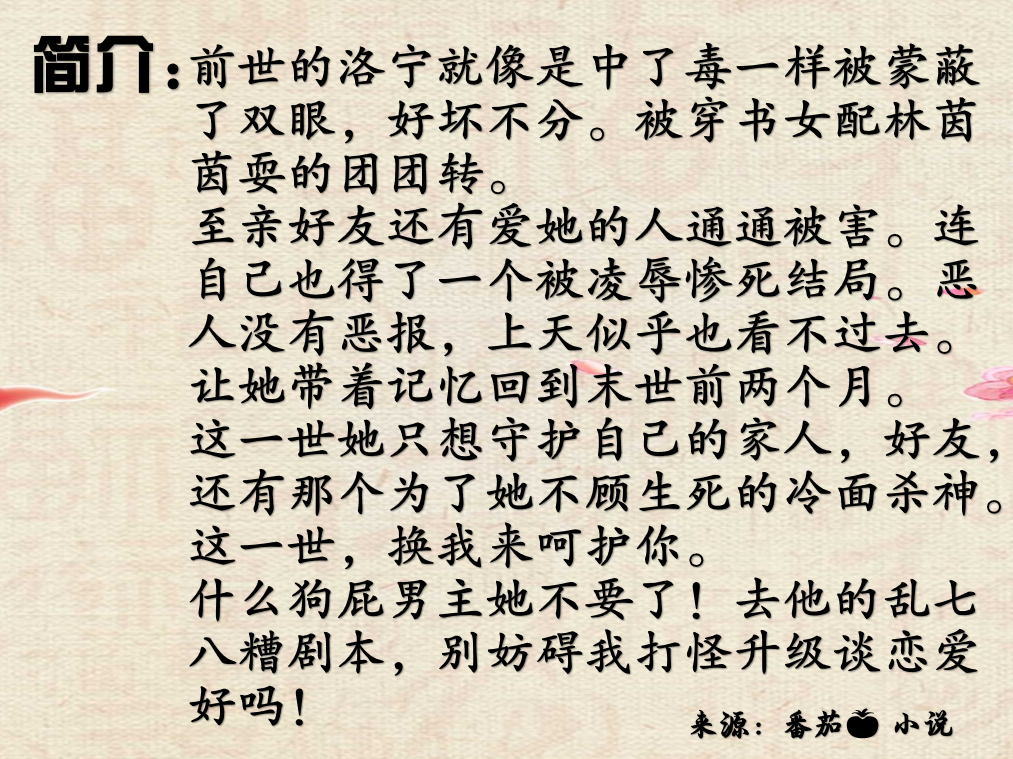 简介:前世的洛宁就像是中了毒一样被蒙蔽
了双眼，好坏不分。被穿书女配林茵
茵耍的团团转。
至亲好友还有爱她的人通通被害。连
自己也得了一个被凌辱惨死结局。恶
人没有恶报，上天似乎也看不过去。
让她带着记忆回到末世前两个月。
这一世她只想守护自己的家人，好友，
还有那个为了她不顾生死的冷面杀神。
这一世，换我来呵护你。
什么狗屁男主她不要了！去他的乱七
八糟剧本，别妨碍我打怪升级谈恋爱
好吗！
来源：番茄🍅小说